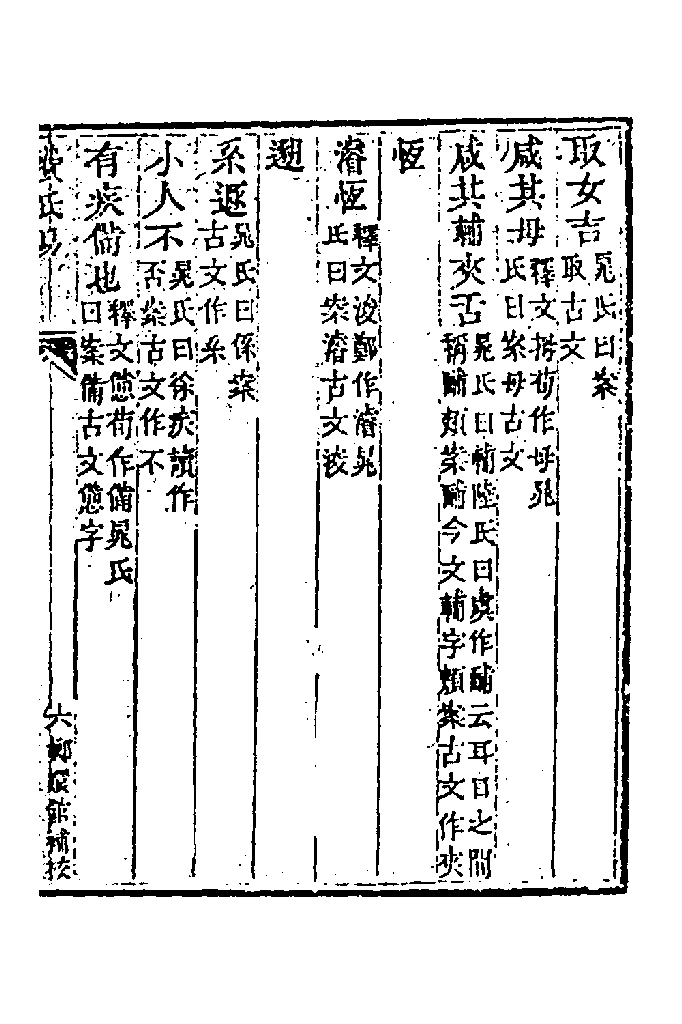 取女吉晁氏曰案
取古文
咸其母釋文拇荀作母晁
氏曰案母古文
咸其輔夾舌晁氏曰輔陸氏曰虞作䩉云耳目之間
稱䩉頰案䩉今文輔字頰案古文作夾
恆
濬恆釋文浚鄭作濬晁
氏曰案濬古文浚
遯
系遯晁氏曰係案
古文作系
小人不晁氏曰徐疾讀作
否案古文作不
有疾備也釋文憊荀作備晁氏
曰案備古文憊字
費氏易
六
嫏嬛館補校